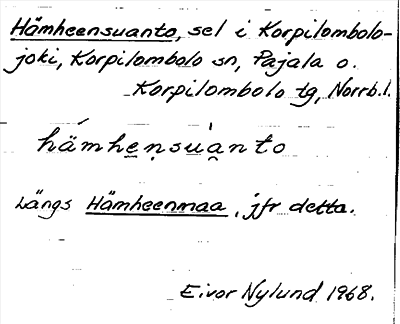 Hämheensuanto, sel i Korpilombolo-
joki, Korpilombolo sn, Pajala o.
Korpilombolo tg, Norrb.l.
hä́mhe̮ṇsuà̮nto
Längs Hämheenmaa, jfr detta.
Eivor Nylund 1968.